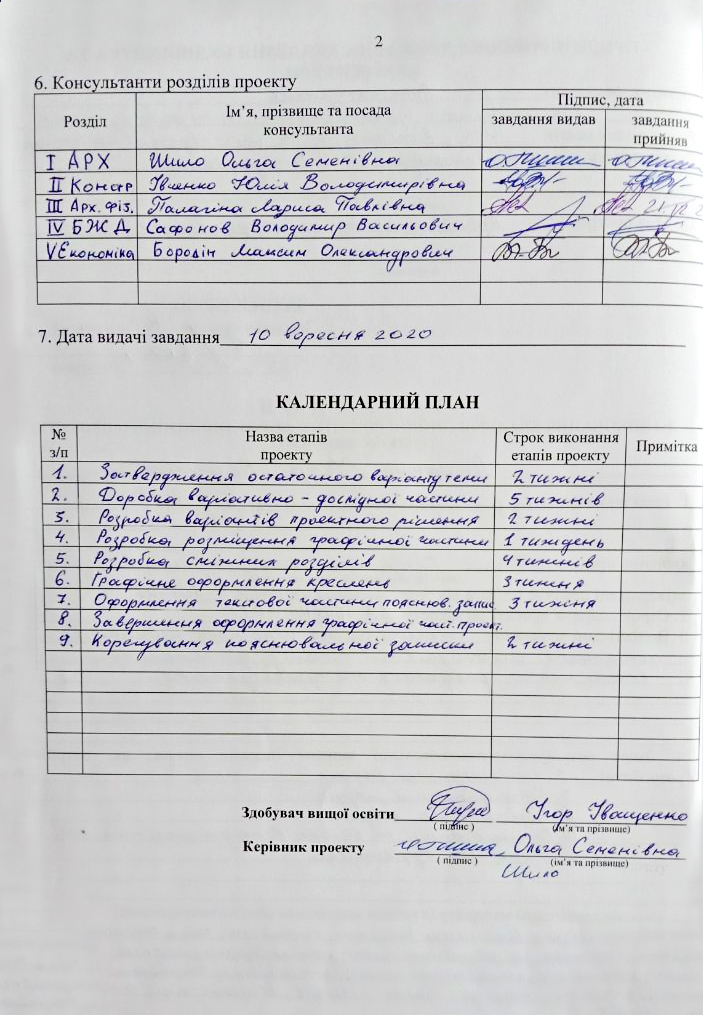 2
6. Консультанти розділів проекту
Розділ Ім’я, прізвище та посада консультанта Підпис, дата
завдання видав завдання прийняв
I АРХ Шило Ольга Семенівна
II Констр Івченко Юлія Володимирівна
III Арх. фіз. Палагіна Лариса Павлівна
IV БЖД Сафонов Володимир Васильович
V Економіка Бородін Максим Олександрович
7. Дата видачі завдання 10 вересня 2020
КАЛЕНДАРНИЙ ПЛАН
№ з/п Назва етапів проекту Строк виконання етапів проекту Примітка
1. Затвердження остаточного варіанту теми 2 тижні
2. Доробка варіативно - дослідної частини 5 тижнів
3. Розробка варіантів проектного рішення 2 тижні
4. Розробка розміщення графічної частини 1 тиждень
5. Розробка суміжних розділів 4 тижнів
6. Графічне оформлення креслень 3 тижня
7. Оформлення текстової частини пояснюв. запис 3 тижня
8. Завершення оформлення графічної част. проект.
9. Корегування пояснювальної записки 2 тижні
Здобувач вищої освіти Ігор Іващенко
( підпис ) (ім’я та прізвище)
Керівник проекту Ольга Семенівна
( підпис ) (ім’я та прізвище)
Шило